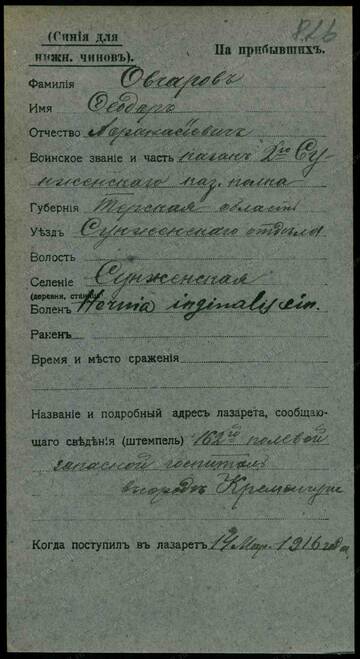 826
(Синія для
нижн. чиновъ).
На прибывшихъ.
Фамилія Овчаровъ
Имя Ѳеодоръ
Отчество Аѳанасіевичъ
Воинское званіе и часть казакъ 2го Су-
нженскаго каз. полка
Губернія Терская область
Уѣздъ Сунженскаго отдѣла
Волость
Селеніе Сунженская
(деревня, станица)
Боленъ Hernia inginalis sin.
Раненъ
Время и мѣсто сраженія
Названіе и подробный адресъ лазарета, сообщаю-
щаго свѣдѣнія (штемпель) 162го полевой
запасной госпиталь
въ городѣ Кременчугѣ
Когда поступилъ въ лазаретъ 14 Мар. 1916 года